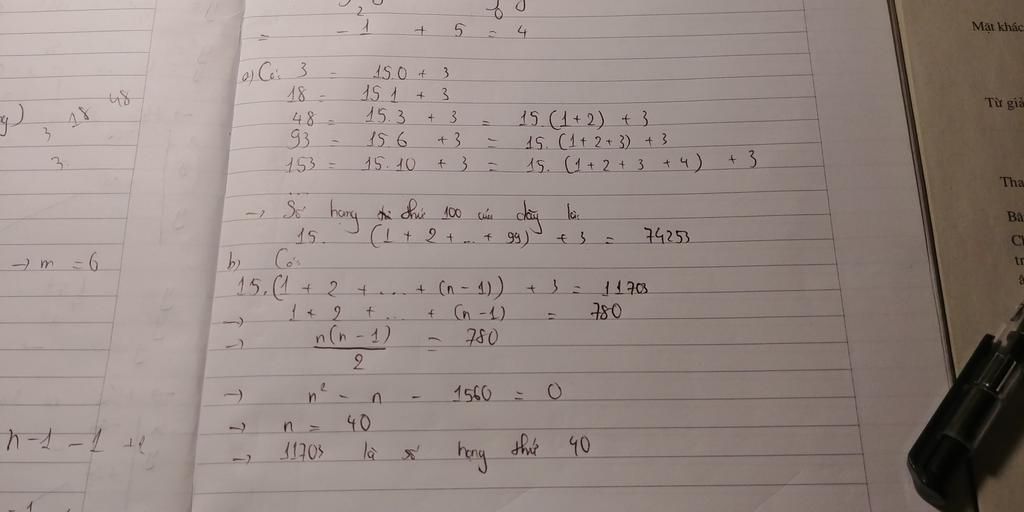 = - 1 + 5 = 4
a) Có: 3 = 15.0 + 3
18 = 15.1 + 3
48 = 15.3 + 3 = 15.(1+2) + 3
93 = 15.6 + 3 = 15.(1+2+3) + 3
153 = 15.10 + 3 = 15.(1+2+3+4) + 3
...
→ Số hạng thứ 100 của dãy là:
15. (1 + 2 + ... + 99) + 3 = 74253
b) Có:
15.(1 + 2 + ... + (n-1)) + 3 = 11703
→ 1 + 2 + ... + (n-1) = 780
→ n(n-1)/2 = 780
→ n² - n - 1560 = 0
→ n = 40
→ 11703 là số hạng thứ 40
3 18 48
3
→ m = 6
n-1-1
Mặt khác
Từ giả
Tha